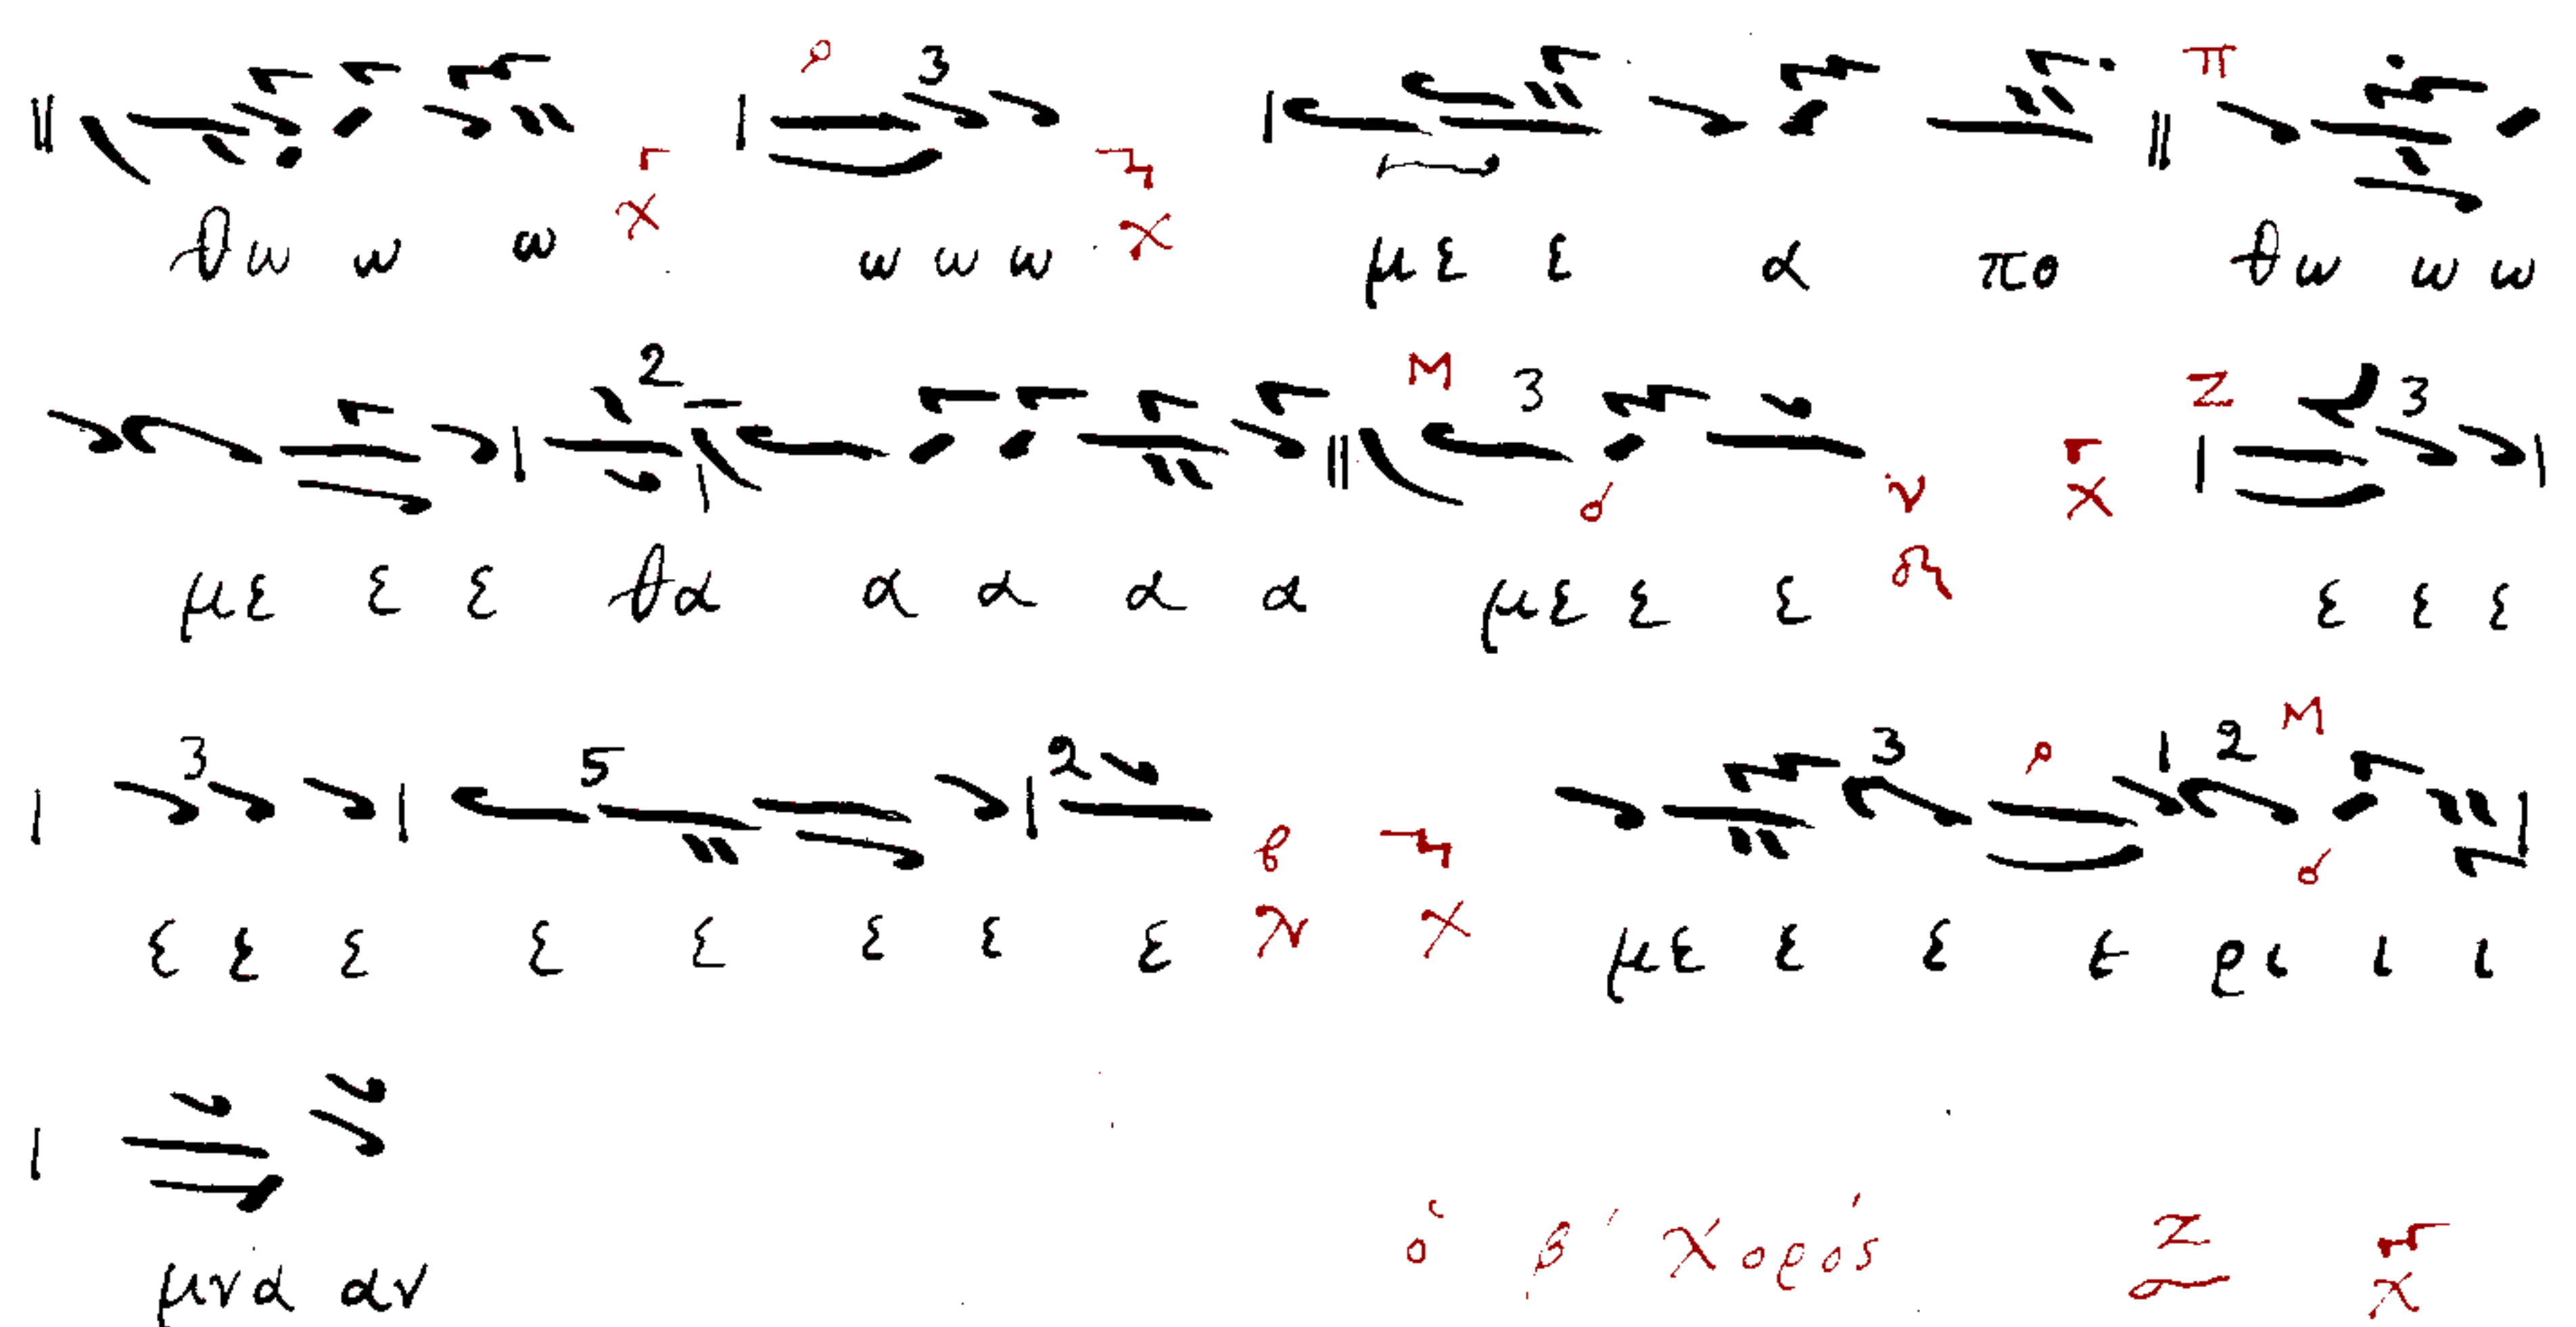 θω ω ω χ ω ω ω χ με ε α πο θω ω ω
με ε ε θα α α α α με ε ε ν δι χ ε ε ε
ε ε ε ε ε ε ε ε β χ με ε ε τ ρι ι ι
μνα αν ὁ β΄ χορός Ζ χ